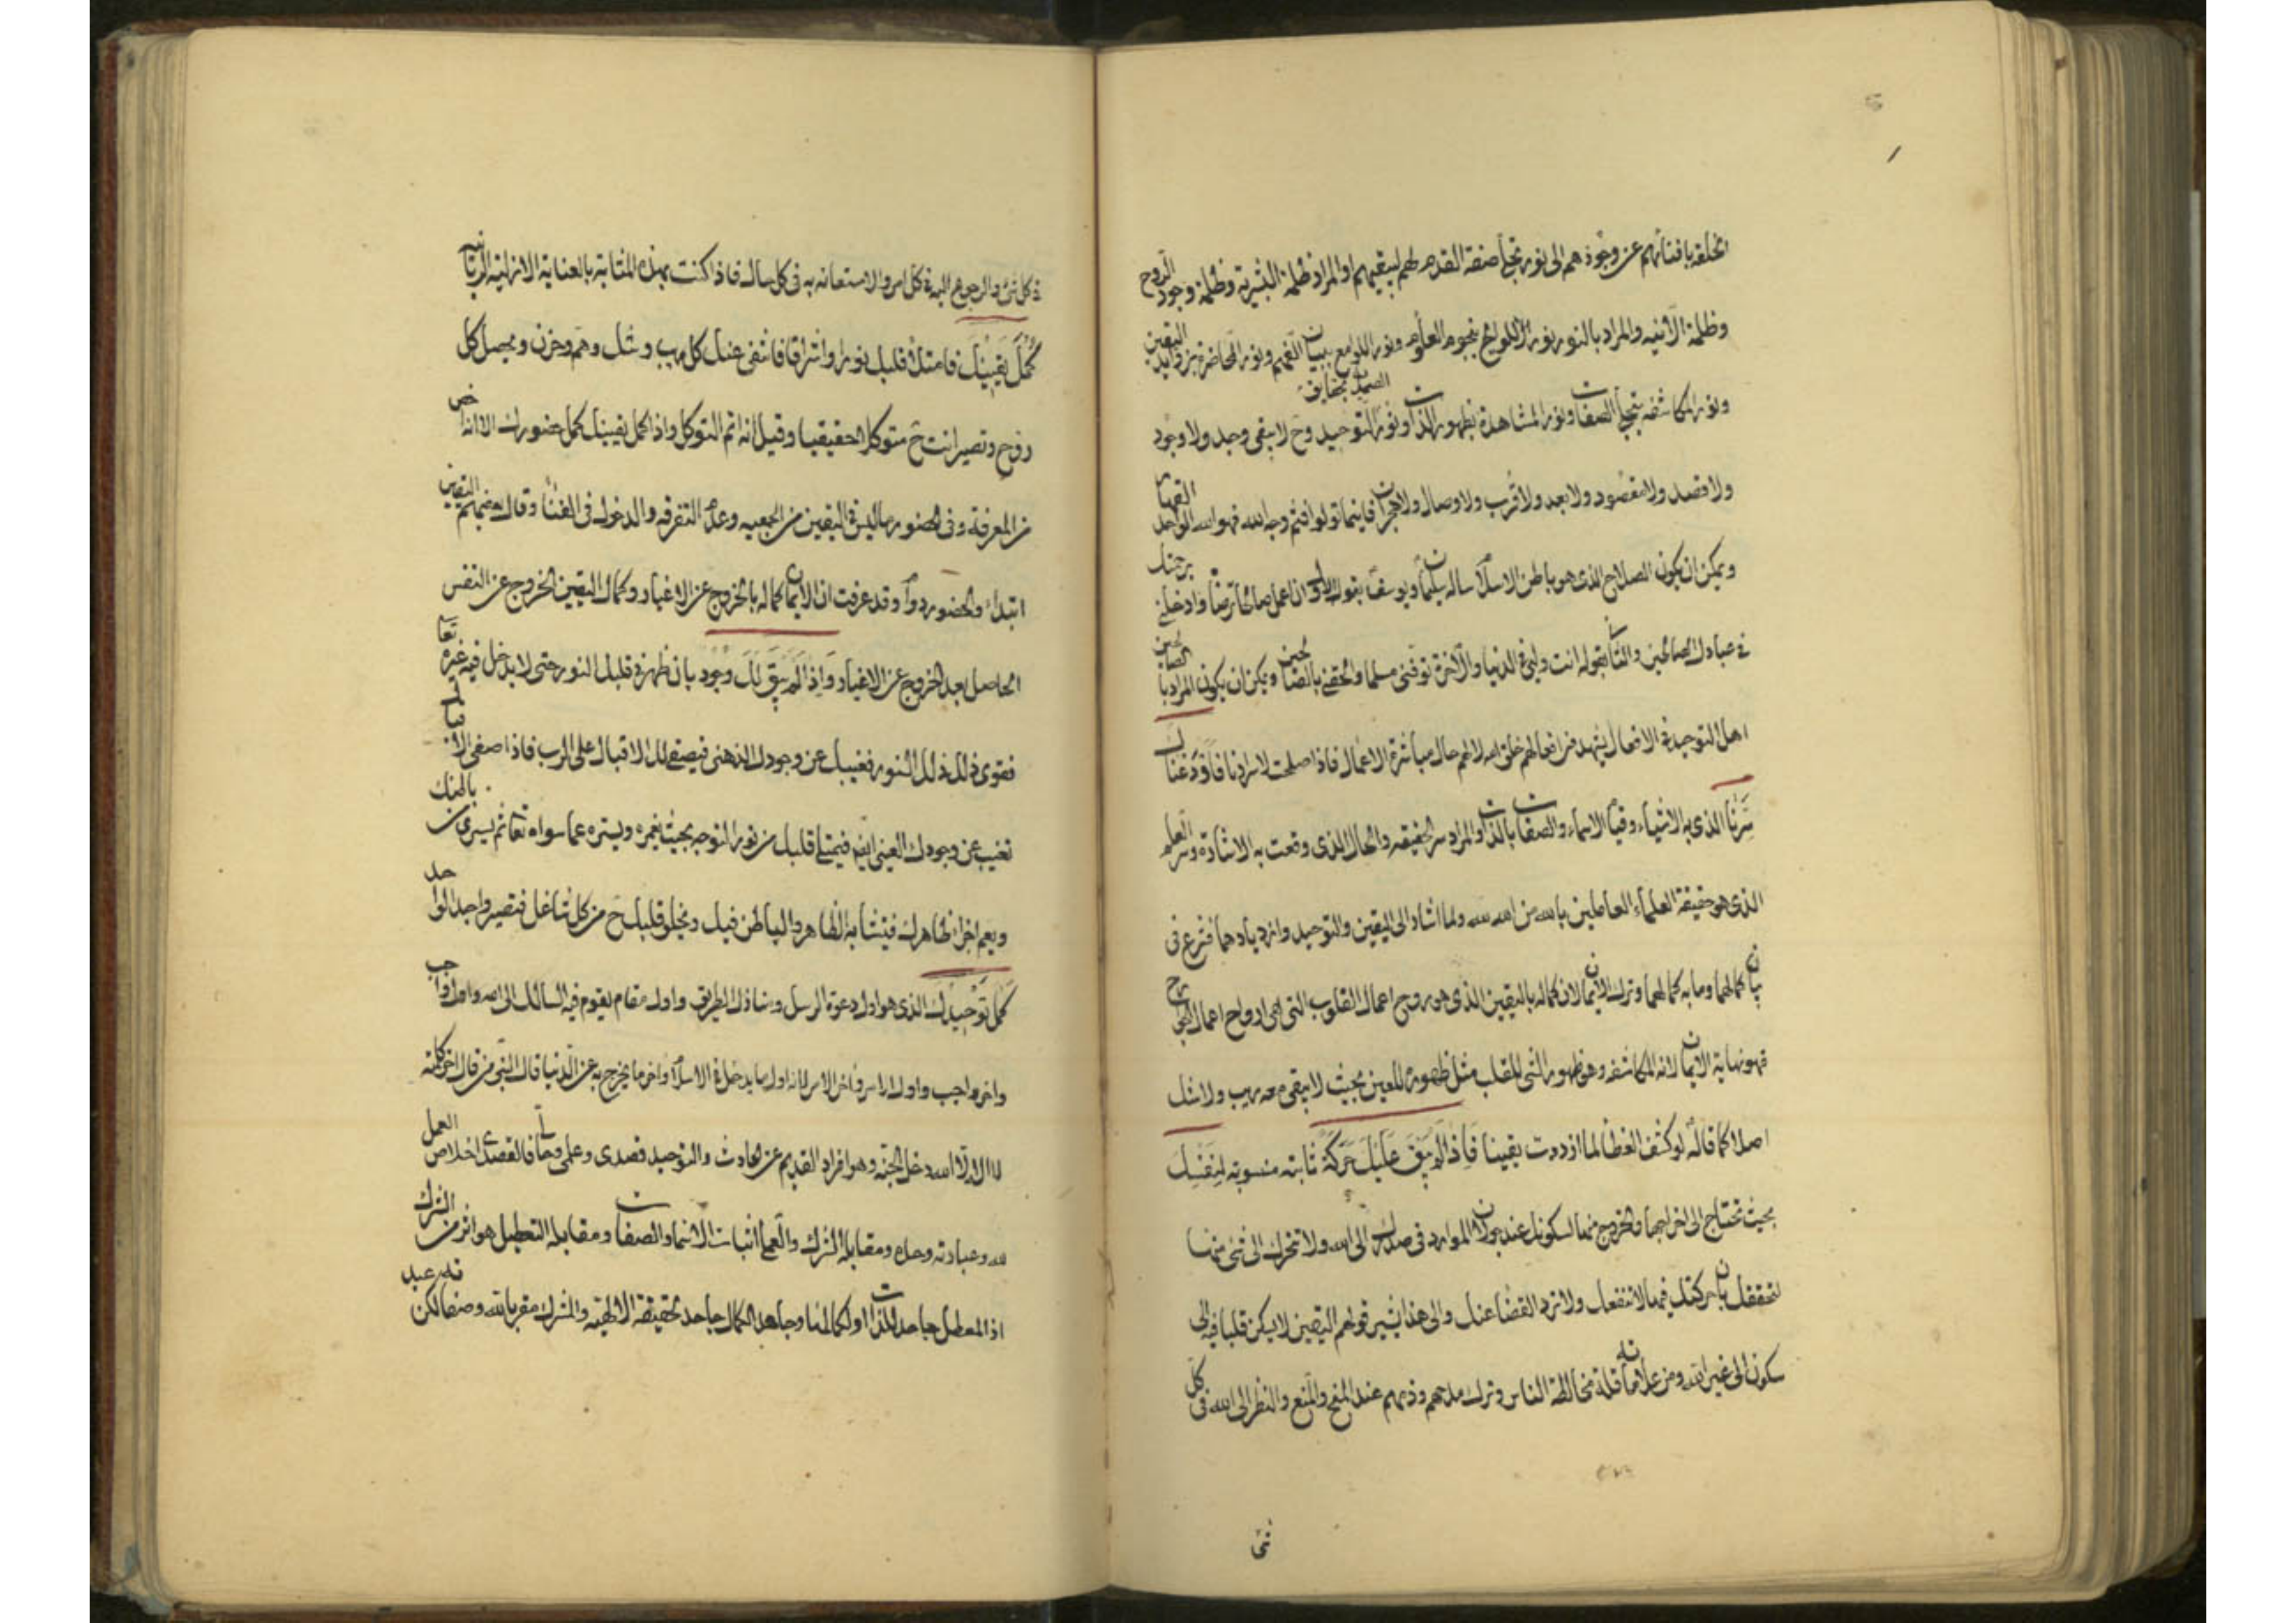 الخلقة بافنائهم عن وجودهم الى نور تجلى صفة القدم لهم ليبقيهم او المراد ظلمة البشرية وظلمة وجود الروح
وظلمة الاثنينية والمراد بالنور نور اللوايح بنجوم العلوم ونور اللوامع ببيان الفهم ونور المحاضرة بزوايد اليقين
ونور المكاشفة بتجلى الصفات ونور المشاهدة بظهور الذات ونور التوحيد وح لا يبقى وجد ولا وجود
ولا قصد ولا مقصود ولا بعد ولا قرب ولا وصال ولا هجران فاينما تولوا فثم وجه الله فهو الله الواحد القهار
ويمكن ان يكون الصلاح الذى هو باطن الاسلام ساله سليمان ويوسف بقول الاول ان اعمل صالحا ترضاه وادخلنى برحمتك
فى عبادك الصالحين والثانى بقوله انت وليى فى الدنيا والآخرة توفنى مسلما والحقنى بالصالحين ويمكن ان يكون المراد بالصالحين
اهل التوحيد فى الافعال يشهد من افعالهم خلق الله لا لهم حال مباشرة الاعمال فاذا اصلحت لاسرارنا فاودعناك
سرنا الذى به الاشياء وقيام الاسماء والصفات بالذات والمراد سر الحقيقة والحال الذى وقعت به الاشارة وسر العلم
الذى هو حقيقة العلماء العاملين بالله من الله لله ولما اشار الى اليقين والتوحيد وازديادهما فشرع فى
بيان كمالهما وما به كمالهما وترك الايمان لان كماله باليقين الذى هو روح اعمال القلوب التى هى ارواح اعمال الجوارح
فهو نهاية الايمان لانه المكاشفة وهو ظهور الشى للقلب مثل ظهوره للعين بحيث لا يبقى معه ريب ولا شك
اصلا كما قال لو كشف الغطا لما ازددت يقينا فاذا لم يبق عليك حركة ثابتة منسوبة لنفسك
بحيث تحتاج الى اخراجها والخروج منها لسكونك عند جولان الموارد فى صدرك الى الله ولا تحرك الى شى منها
لتحققك بان حركتك فيها لا تنفعك ولا ترد القضا عنك والى هذا يشير قولهم اليقين لا يسكن قلبا فيه الى
سكون الى غير الله ومن علاماته قلة مخالطة الناس وترك مدحهم وذمهم عند المنح والمنع والنظر الى الله فى كل
شى
ذكل شى والرجوع اليه فى كل امر والاستعانة به فى كل حال فاذا كنت بهذه المثابة بالعناية الازلية الربانية
كمل يقينك فامتلأ قلبك نورا واشراقا فانتفى عنك كل ريب وشك وهم وحزن ويحصل كل
روح وتصير انت ح متوكلا حقيقيا وقيل انه اتم التوكل واذا كمل يقينك كمل حضورك الا انه اخص
من المعرفة وفى الحضور ما ليس فى اليقين من الجمعية وعدم التفرقة والدخول فى الفنا وقال بعضهم اليقين
ابتداء والحضور دوام وقد عرفت ان الايمان كماله بالخروج عن الاغيار وكمال اليقين الخروج عن النفس
الحاصل بعد الخروج عن الاغيار واذا لم يبق لك وجود بان ظهر فى قلبك النور حتى لا يدخل فيه غيره تعالى
فقوى ذلك النور فغيبك عن وجودك الذهنى فيصفى لك الاقبال على الرب فاذا صفى الاقبال
تغيب عن وجودك العينى ايضا فيمتلى قلبك من نور التوجه بحيث يغمره ويستره عما سواه تعالى ثم يسرى
ويعم اجزا ظاهرك فيتشابه الظاهر والباطن فيك ويخلو قلبك ح من كل شاغل فتصير واحدا لواحد
كمل توحيدك الذى هو اول دعوة الرسل ومنازل الطريق واول مقام يقوم فيه السالك الى الله واول واجب
واخر واجب واول الامر واخر الامر لانه اول ما يدخل فى الاسلام واخر ما يخرج به عن الدنيا قال النبى من قال اخر كلمة
لا اله الا الله دخل الجنة وهو افراد القديم عن الحادث والتوحيد قصدى وعلمى فالقصدى اخلاص العمل
لله وعبادته وحده ومقابله الشرك والعلمى اثبات الاسماء والصفات ومقابله التعطيل هو اشر من الشرك
اذ المعطل جاحد للذات او لكمالها وجاحد الكمال جاحد لحقيقة الالهية والمشرك مقر بالله وصفاته لكن عبد